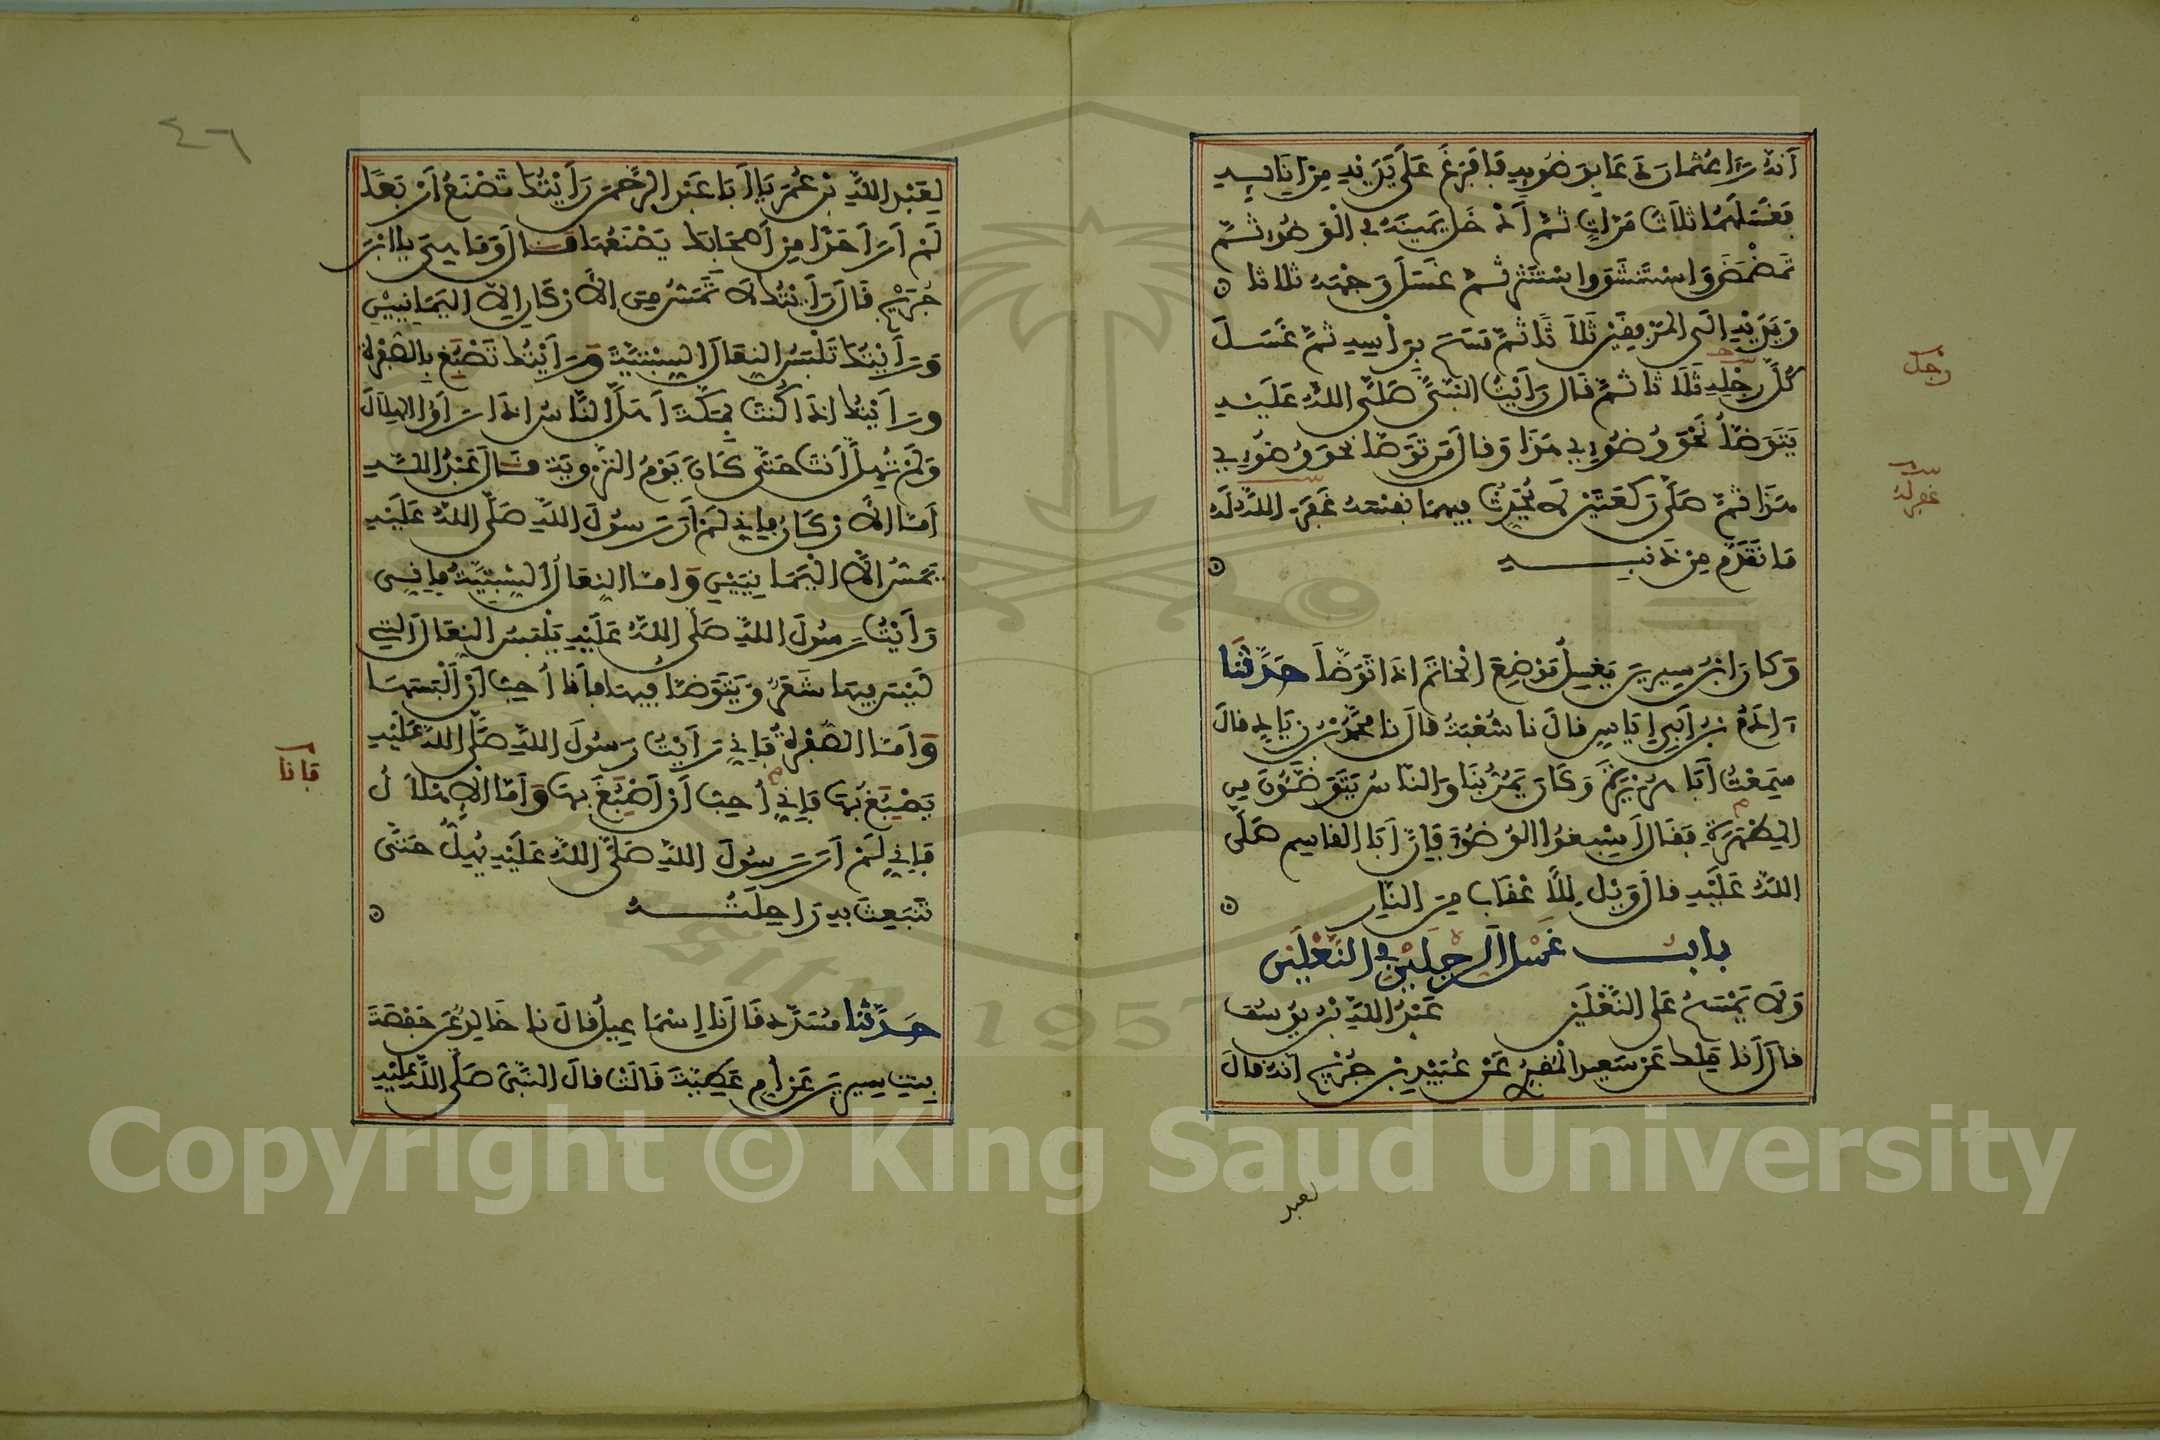 أنه رأى عثمان دعا بوضوء فأفرغ على يديه من إنائه
فغسلهما ثلاث مرات ثم أدخل يمينه في الوضوء ثم
تمضمض واستنشق واستنثر ثم غسل وجهه ثلاثا
ويديه إلى المرفقين ثلاثا ثم مسح برأسه ثم غسل
كل رجله ثلاثا ثم قال رأيت النبي صلى الله عليه
يتوضأ نحو وضوءي هذا وقال من توضأ نحو وضوءي
هذا ثم صلى ركعتين لا يحدث فيهما نفسه غفر الله له
ما تقدم من ذنبه
رجل
غفر له
وكان ابن سيرين يغسل موضع الخاتم إذا توضأ حدثنا
آدم بن أبي إياس قال نا شعبة قال نا محمد بن زياد قال
سمعت أبا هريرة وكان يمر بنا والناس يتوضئون من
المطهرة فقال أسبغوا الوضوء فإن أبا القاسم صلى
الله عليه قال ويل للأعقاب من النار
باب غسل الرجلين في النعلين
ولا يمسح على النعلين عبد الله بن يوسف
قال أنا ملك عن سعيد المقبري عن عبيد بن جريج أنه قال
لعبد
٤٦
لعبد الله بن عمر يا أبا عبد الرحمن رأيتك تصنع أربعا
لم أر أحدا من أصحابك يصنعها قال وما هي يا ابن
جريج قال رأيتك لا تمس من الأركان إلا اليمانيين
ورأيتك تلبس النعال السبتية ورأيتك تصبغ بالصفرة
ورأيتك إذا كنت بمكة أهل الناس إذا رأوا الهلال
ولم تهل أنت حتى كان يوم التروية قال عبد الله
أما الأركان فإني لم أر رسول الله صلى الله عليه
يمس إلا اليمانيين وأما النعال السبتية فإني
رأيت رسول الله صلى الله عليه يلبس النعال التي
ليس فيها شعر ويتوضأ فيها فأنا أحب أن ألبسها
وأما الصفرة فإني رأيت رسول الله صلى الله عليه
يصبغ بها فإني أحب أن أصبغ بها وأما الإهلال
فأنا
فإني لم أر رسول الله صلى الله عليه يهل حتى
تنبعث به راحلته
حدثنا مسدد قال نا إسماعيل قال نا خالد عن حفصة
بنت سيرين عن أم عطية قالت قال النبي صلى الله عليه
Copyright © King Saud University
1957